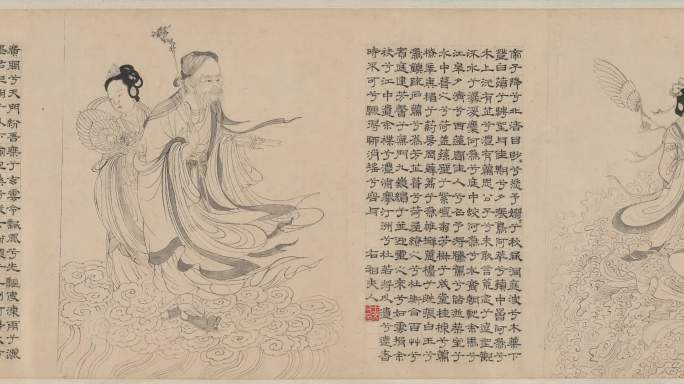 帝子降兮北渚目眇兮愁予嫋兮秋風洞庭波兮木葉下
登白薠兮騁望與佳期兮夕張鳥何萃兮蘋中罾何為兮
木上沅有芷兮澧有蘭思公子兮未敢言荒忽兮遠望觀
流水兮潺湲麋何為兮庭中蛟何為兮水裔朝馳余馬兮
江皋夕濟兮西澨聞佳人兮召予將騰駕兮偕逝築室兮
水中葺之兮荷蓋蓀壁兮紫壇播芳椒兮成堂桂棟兮蘭
橑辛夷楣兮葯房罔薜荔兮為帷擗蕙櫋兮既張白玉兮
為鎮疏石蘭兮為芳芷葺兮荷屋繚之兮杜衡合百草兮
實庭建芳馨兮廡門九嶷繽兮並迎靈之來兮如雲捐余
袂兮江中遺余褋兮澧浦搴汀洲兮杜若將以遺兮遠者
時不可兮驟得聊逍遙兮容與
右湘夫人
廣開兮天門紛吾乘兮玄雲令飄風兮先驅使涷雨兮灑